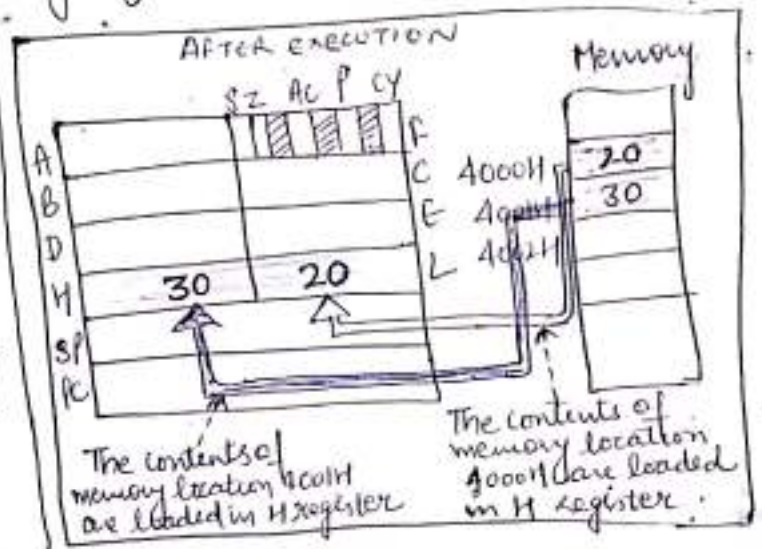 AFTER EXECUTION
Memory
S Z AC P CY
A F
B C
D E
H 30 20 L
SP
PC
4000H 20
4001H 30
4002H
The contents of
memory location 4001H
are loaded in H register
The contents of
memory location
4000H are loaded
in H register.